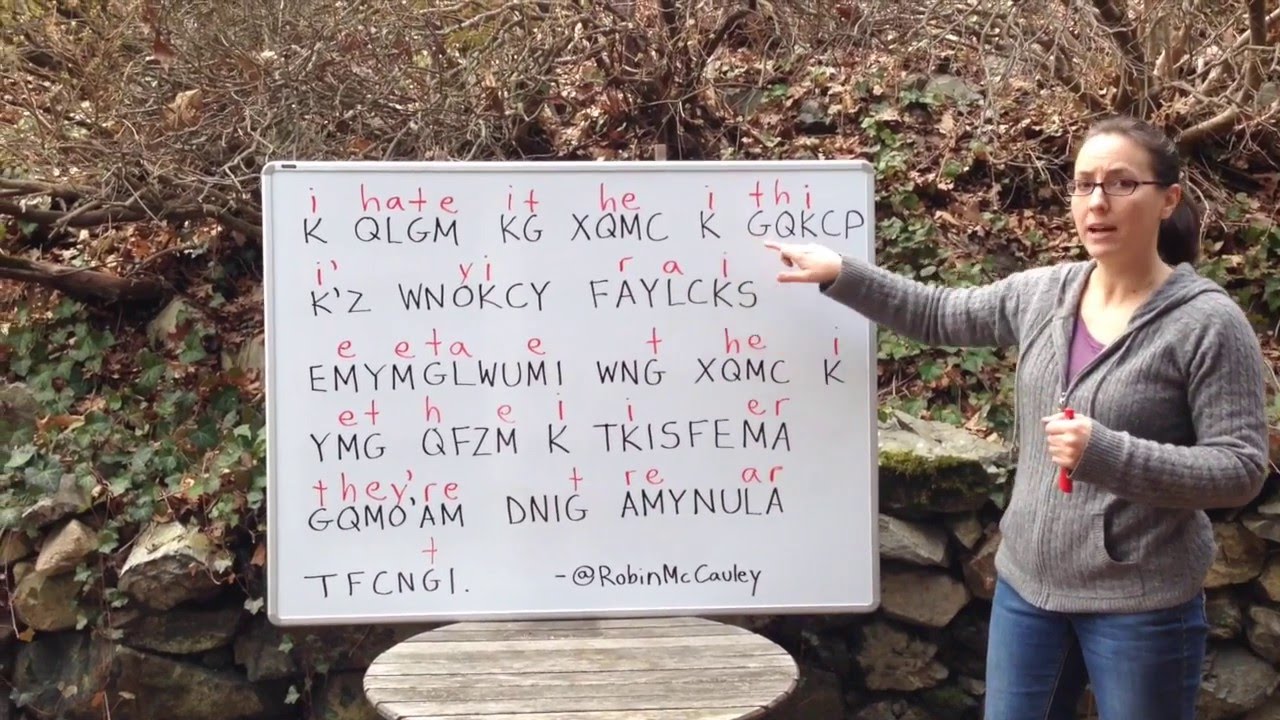 i hate it he i thi
K QLGM KG XQMC K GQKCP
i' yi r a i
K'Z WNOKCY FAYLCKS
e eta e t he i
EMYMGLWUMI WNG XQMC K
et h e i i er
YMG QFZM K TKISFEMA
they're t re ar
GQMO'AM DNIG AMYNULA
t
TFCNGI.
-@RobinMcCauley